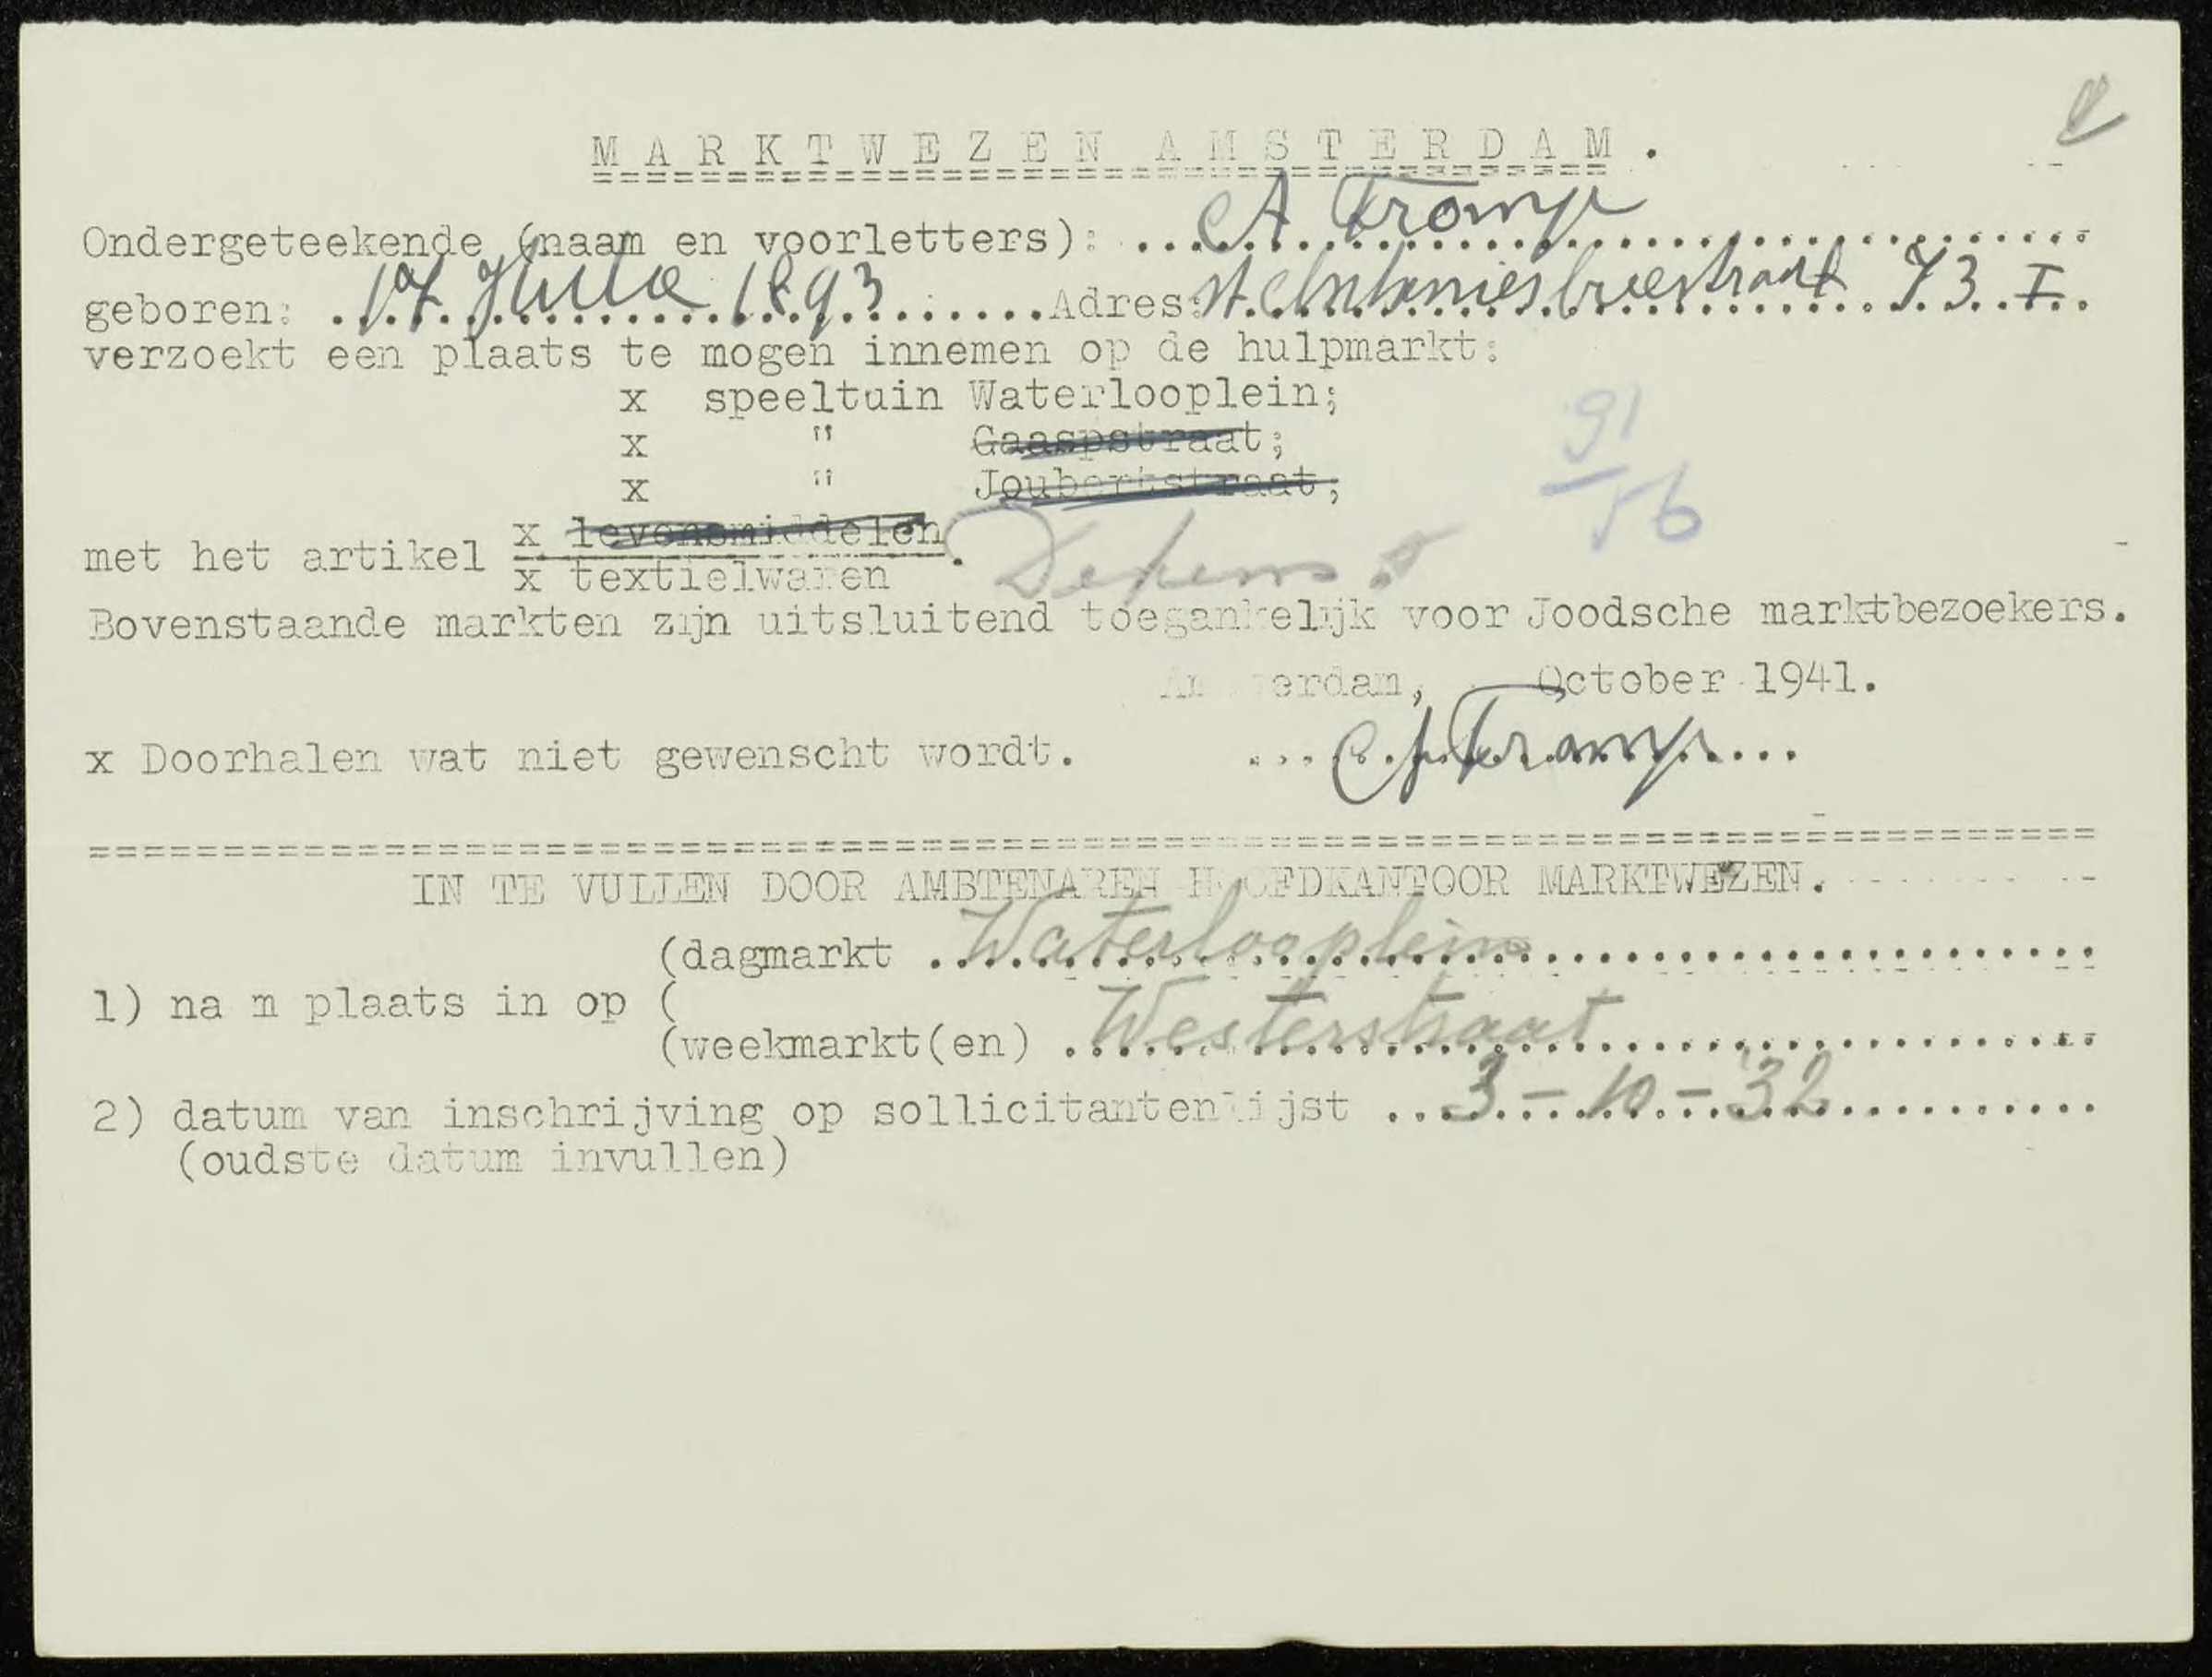 MARKTWEZEN AMSTERDAM.
Ondergeteekende (naam en voorletters): A Tromp
geboren: 17 1893 Adres: st. Anthoniesbreestraat 73 I
verzoekt een plaats te mogen innemen op de hulpmarkt:
x speeltuin Waterlooplein;
x " Gaaspstraat;
x " Joubertstraat;
91
56
x levensmiddelen
met het artikel
x textielwaren. Dekens
Bovenstaande markten zijn uitsluitend toegankelijk voor Joodsche marktbezoekers.
Amsterdam, October 1941.
x Doorhalen wat niet gewenscht wordt. A Tromp
IN TE VULLEN DOOR AMBTENAREN HOOFDKANTOOR MARKTWEZEN.
(dagmarkt Waterlooplein
1) na m plaats in op (
(weekmarkt(en) Westerstraat
2) datum van inschrijving op sollicitantenlijst 3-10-'32
(oudste datum invullen)